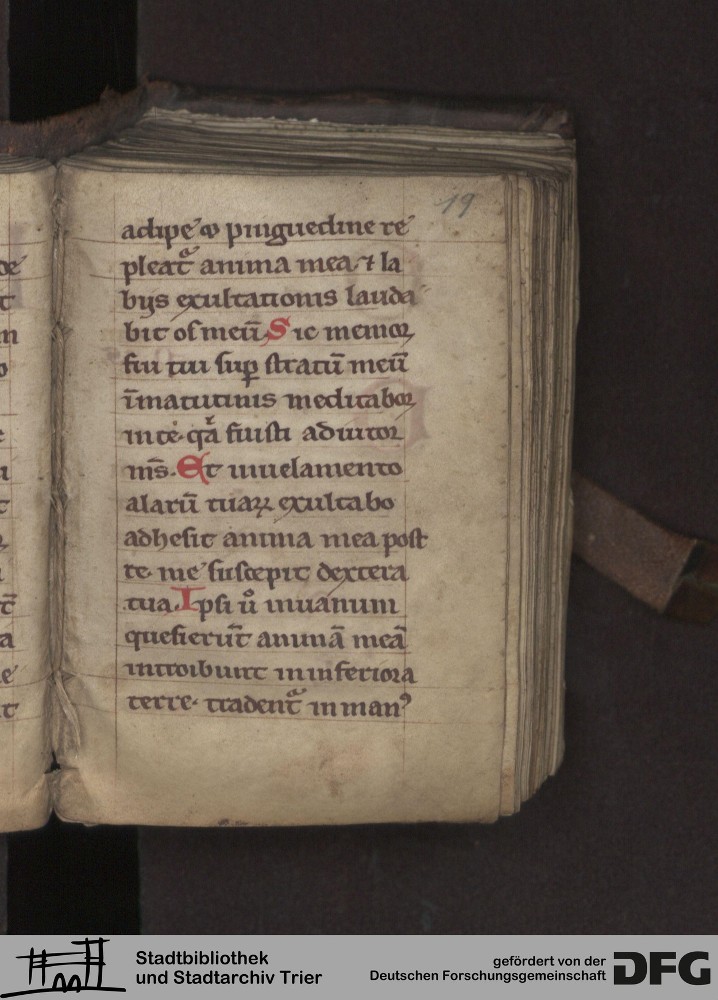 19
adipe ⁊ pinguedine re
pleat᷑ anima mea ⁊ la
bijs exultationis lauda
bit os meū. Sic memoꝝ
fui tui sup̱ stratū meū
īmatutinis meditaboꝝ
in te. qͥa fuisti adiutoꝝ
m̄s. Et inuelamento
alarū tuaꝝ exultabo
adhesit anima mea post
te. me suscepit dextera
tua. Ipsi u̾ inuanum
quesierūt animā meā
introibunt ininferiora
terre. tradent᷑ in manꝰ
Stadtbibliothek
und Stadtarchiv Trier
gefördert von der
Deutschen Forschungsgemeinschaft
DFG